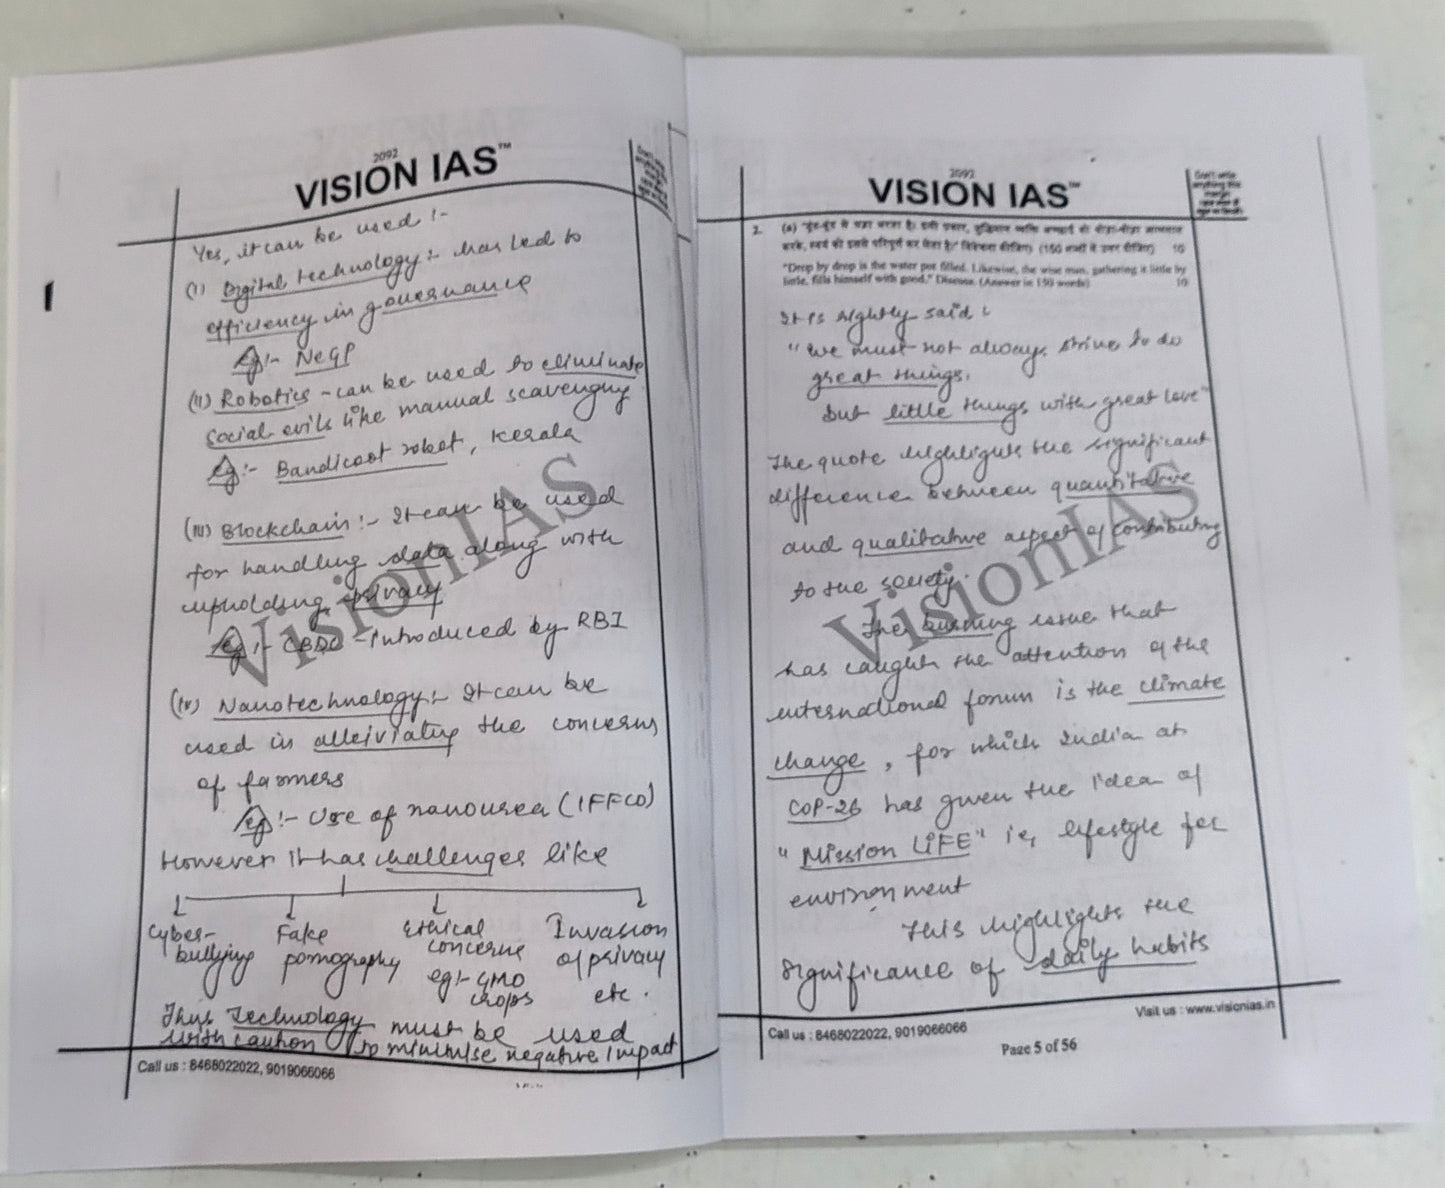 2092
VISION IAS™
Yes, it can be used :-
(i) Digital technology :- has led to
efficiency in governance
Eg :- NeGP
(ii) Robotics - can be used to eliminate
social evils like manual scavenging
Eg :- Bandicoot robot, Kerala
(iii) Blockchain :- It can be used
for handling data along with
upholding privacy
Eg :- CBDC - introduced by RBI
(iv) Nanotechnology :- It can be
used in alleiviating the concerns
of farmers
Eg :- Use of nanourea (IFFCO)
However it has challenges like
Cyber-bullying
Fake pornography
Ethical concerns eg :- GMO crops
Invasion of privacy etc.
Thus Technology must be used
with caution to minimise negative impact
VisionIAS
Call us : 8468022022, 9019066066
2092
VISION IAS™
Don't write anything this margin
2. (a) "बूंद-बूंद से घड़ा भरता है। इसी प्रकार, बुद्धिमान व्यक्ति अच्छाई को थोड़ा-थोड़ा आत्मसात
करके, स्वयं को इससे परिपूर्ण कर लेता है।" विवेचना कीजिए। (150 शब्दों में उत्तर दीजिए) 10
"Drop by drop is the water pot filled. Likewise, the wise man, gathering it little by
little, fills himself with good." Discuss. (Answer in 150 words) 10
It is rightly said :
"We must not always strive to do
great things.
but little things with great love"
The quote highlights the significant
difference between quantitative
and qualitative aspect of contributing
to the society.
The burning issue that
has caught the attention of the
international forum is the climate
change, for which India at
COP-26 has given the idea of
"Mission LiFE" i.e, lifestyle for
environment
This highlights the
significance of daily habits
VisionIAS
Visit us : www.visionias.in
Call us : 8468022022, 9019066066
Page 5 of 56